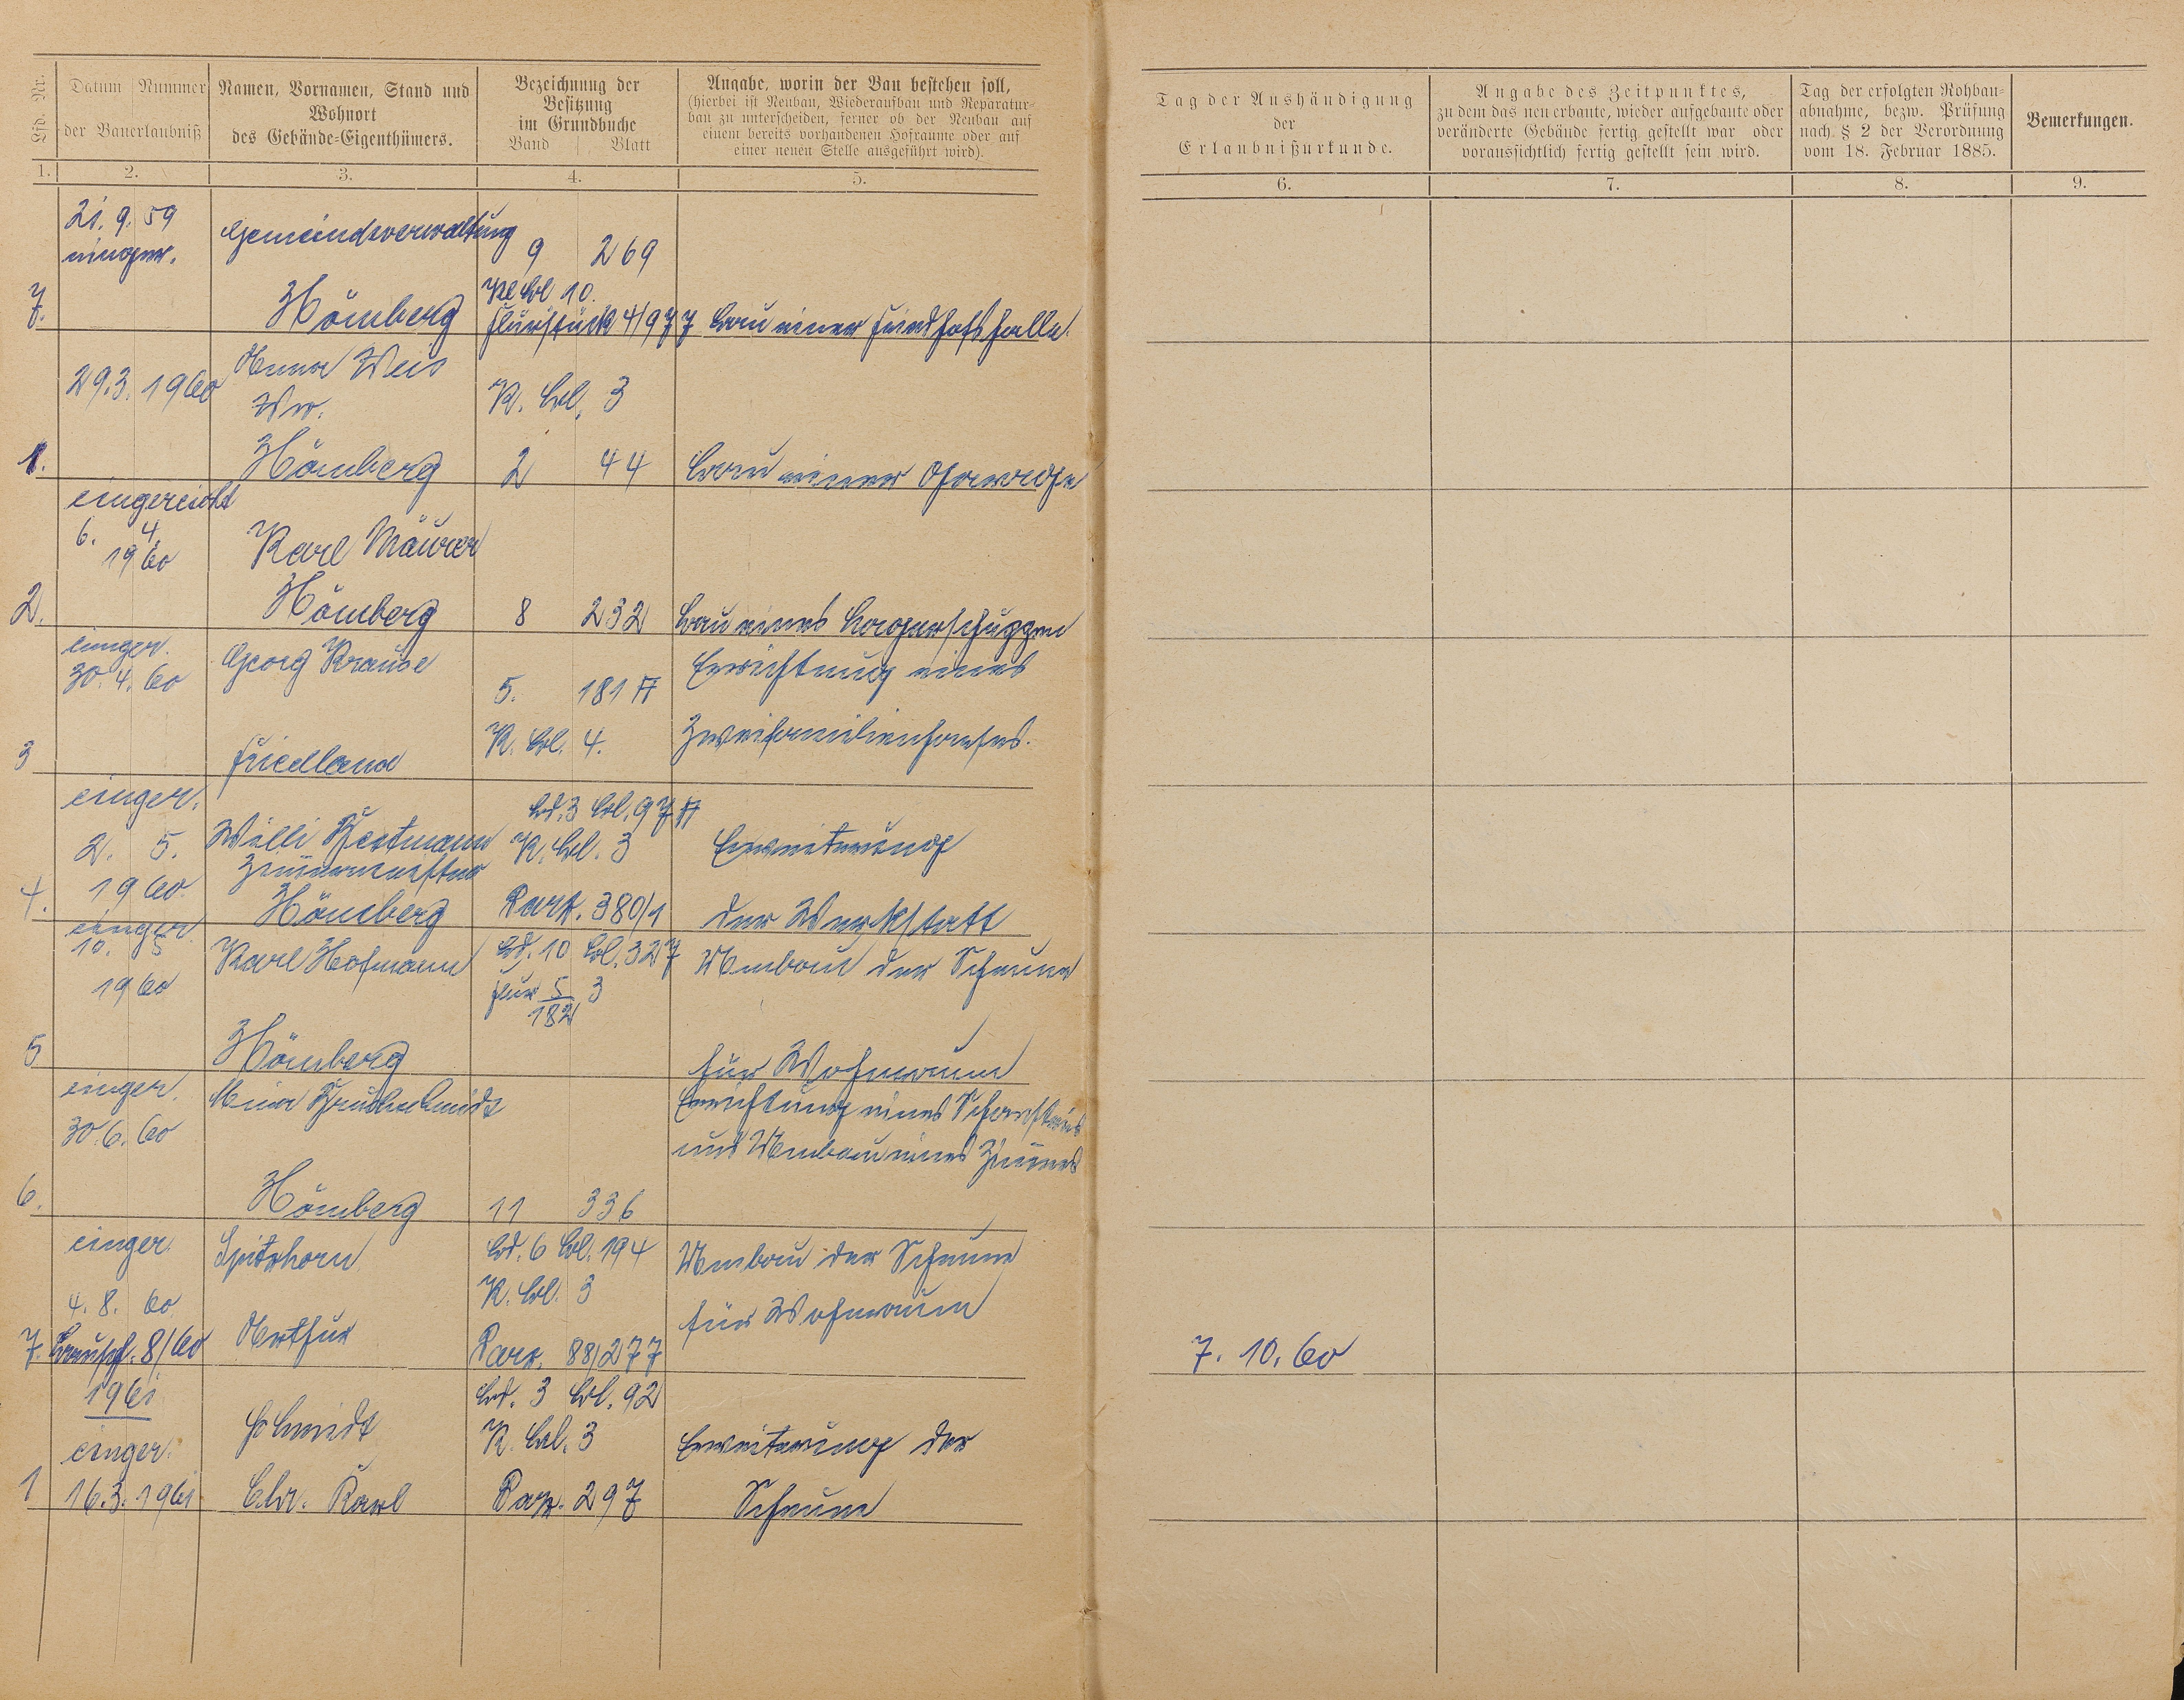 Lfd. Nr.
Datum Nummer
der Bauerlaubniß
Namen, Vornamen, Stand und
Wohnort
des Gebäude=Eigenthümers.
Bezeichnung der
Besitzung
im Grundbuche
Band Blatt
Angabe, worin der Bau bestehen soll,
(hierbei ist Neubau, Wiederaufbau und Reparatur=
bau zu unterscheiden, ferner ob der Neubau auf
einem bereits vorhandenen Hofraume oder auf
einer neuen Stelle ausgeführt wird).
Tag der Aushändigung
der
Erlaubnißurkunde.
Angabe des Zeitpunktes,
zu dem das neu erbaute, wieder aufgebaute oder
veränderte Gebäude fertig gestellt war oder
voraussichtlich fertig gestellt sein wird.
Tag der erfolgten Rohbau=
abnahme, bezw. Prüfung
nach § 2 der Verordnung
vom 18. Februar 1885.
Bemerkungen.
1. 2. 3. 4. 5. 6. 7. 8. 9.
21. 9. 59 Gemeindeverwaltung
einger. 9 269
K Bl 10.
7. Hömberg Flurstück 4/977 Bau einer Friedhofshalle.
29.3. 1960 Weis
Ww. K. Bl. 3
1. Hömberg 2 44 Bau einer Garage
eingereicht
6. 4.
1960 Karl Maurer
2. Hömberg 8 232 Bau eines Lagerschuppen
einger. Georg Krause Errichtung eines
30. 4. 60 5. 181 A
K. Bl. 4. Zweifamilienhauses.
3 Friedland
einger. Bd. 3 Bl. 97 A
2. 5. Willi K. Bl. 3 Erweiterung
1960 Zimmermeister
4. Hömberg Parz. 380/1 der Werkstatt
einger.
10. 5 Karl Hofmann Bd. 10 Bl. 327 Umbau der Scheune
1960 Flur 5/182 3
5 Hömberg für Wohnraum
einger. Errichtung eines Schornsteins
30. 6. 60 und Umbau eines Zimmers
6. Hömberg 11 336
einger. Spitzhorn Bd. 6 Bl. 194 Umbau der Scheune
4. 8. 60 K. Bl. 3 für Wohnraum
Arthur
7. 8/60 Parz. 88/277 7. 10. 60
1961 Bd. 3 Bl. 92
einger. Schmidt K. Bl. 3 Erweiterung der
1 16.3. 1961 Chr. Karl Parz. 297 Scheune